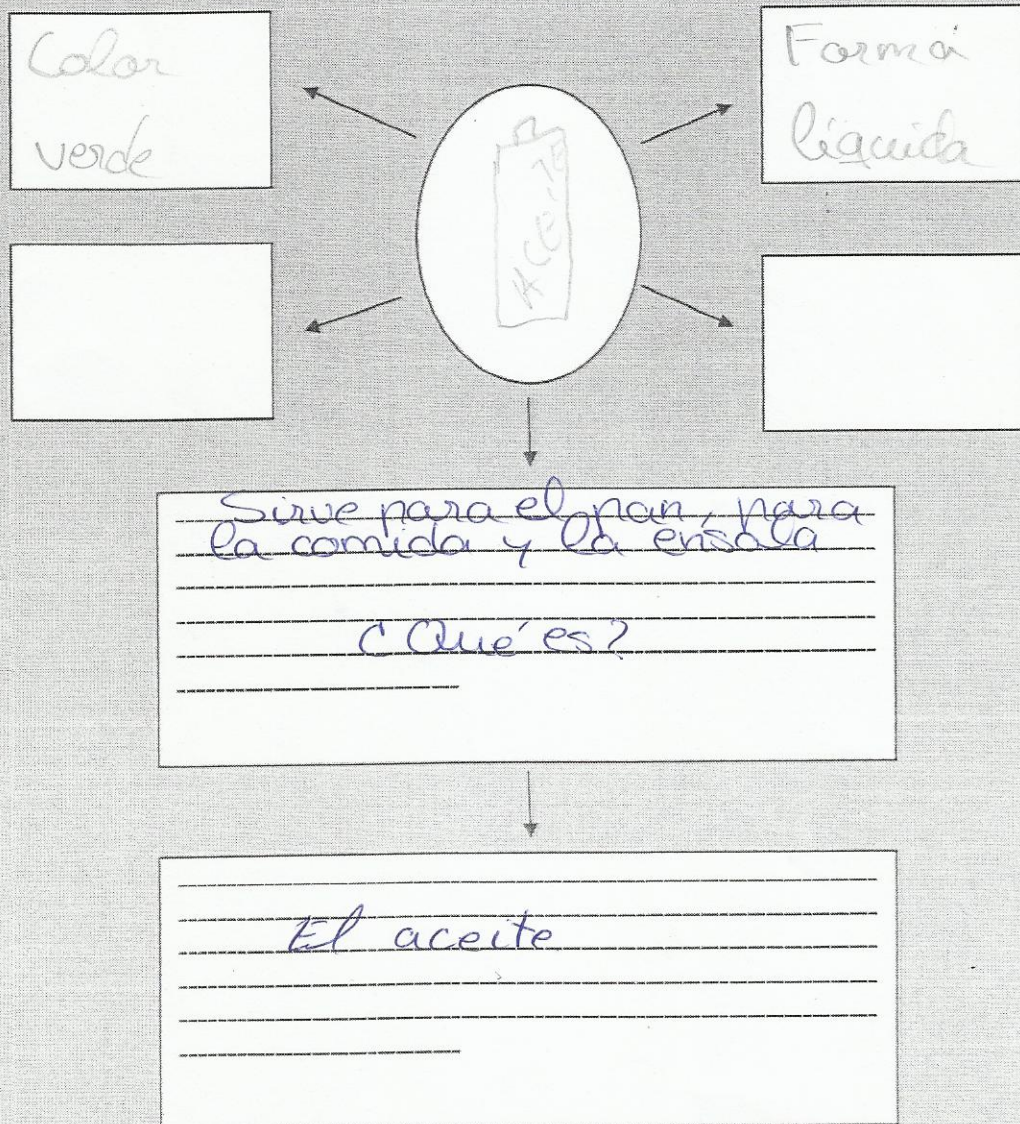 Color
verde
Forma
líquida
ACEITE
Sirve para el pan, para
la comida y la ensala
¿Qué es?
El aceite